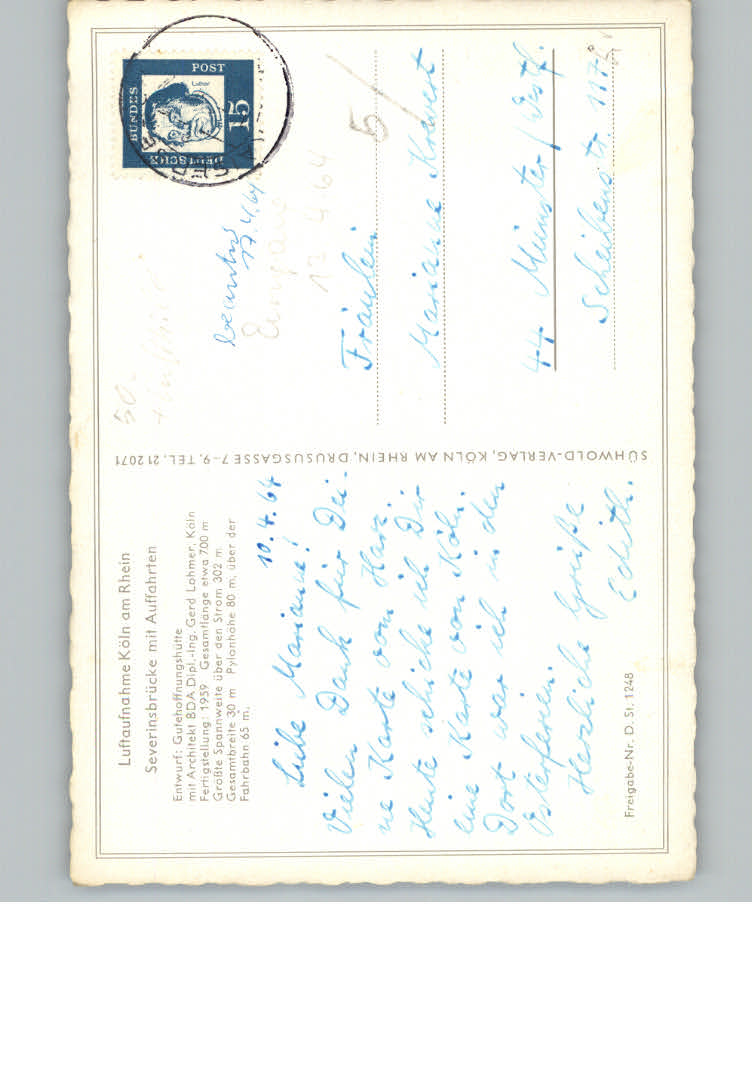 Luftaufnahme Köln am Rhein
Severinsbrücke mit Auffahrten
Entwurf: Gutehoffnungshütte
mit Architekt BDA Dipl.-Ing. Gerd Lohmer, Köln
Fertigstellung: 1959 Gesamtlänge etwa 700 m
Größte Spannweite über den Strom 302 m
Gesamtbreite 30 m Pylonhöhe 80 m, über der
Fahrbahn 65 m.
10.4.64
Liebe Marianne!
Vielen Dank für Dei-
ne Karte vom Harz.
Heute schicke ich Dir
eine Karte von Köln.
Dort war ich in den
Osterferien.
Herzliche Grüße
Edith.
Freigabe-Nr. D. St. 1248
SÜHWOLD-VERLAG, KÖLN AM RHEIN, DRUSUSGASSE 7-9, TEL. 21 2071
DEUTSCHE
BUNDES
POST
15
Luther
50.
17.4.64
Eingang
13 4 64
5/
Fräulein
Marianne
44 Münster/Westf.
Scheibenstr. 117